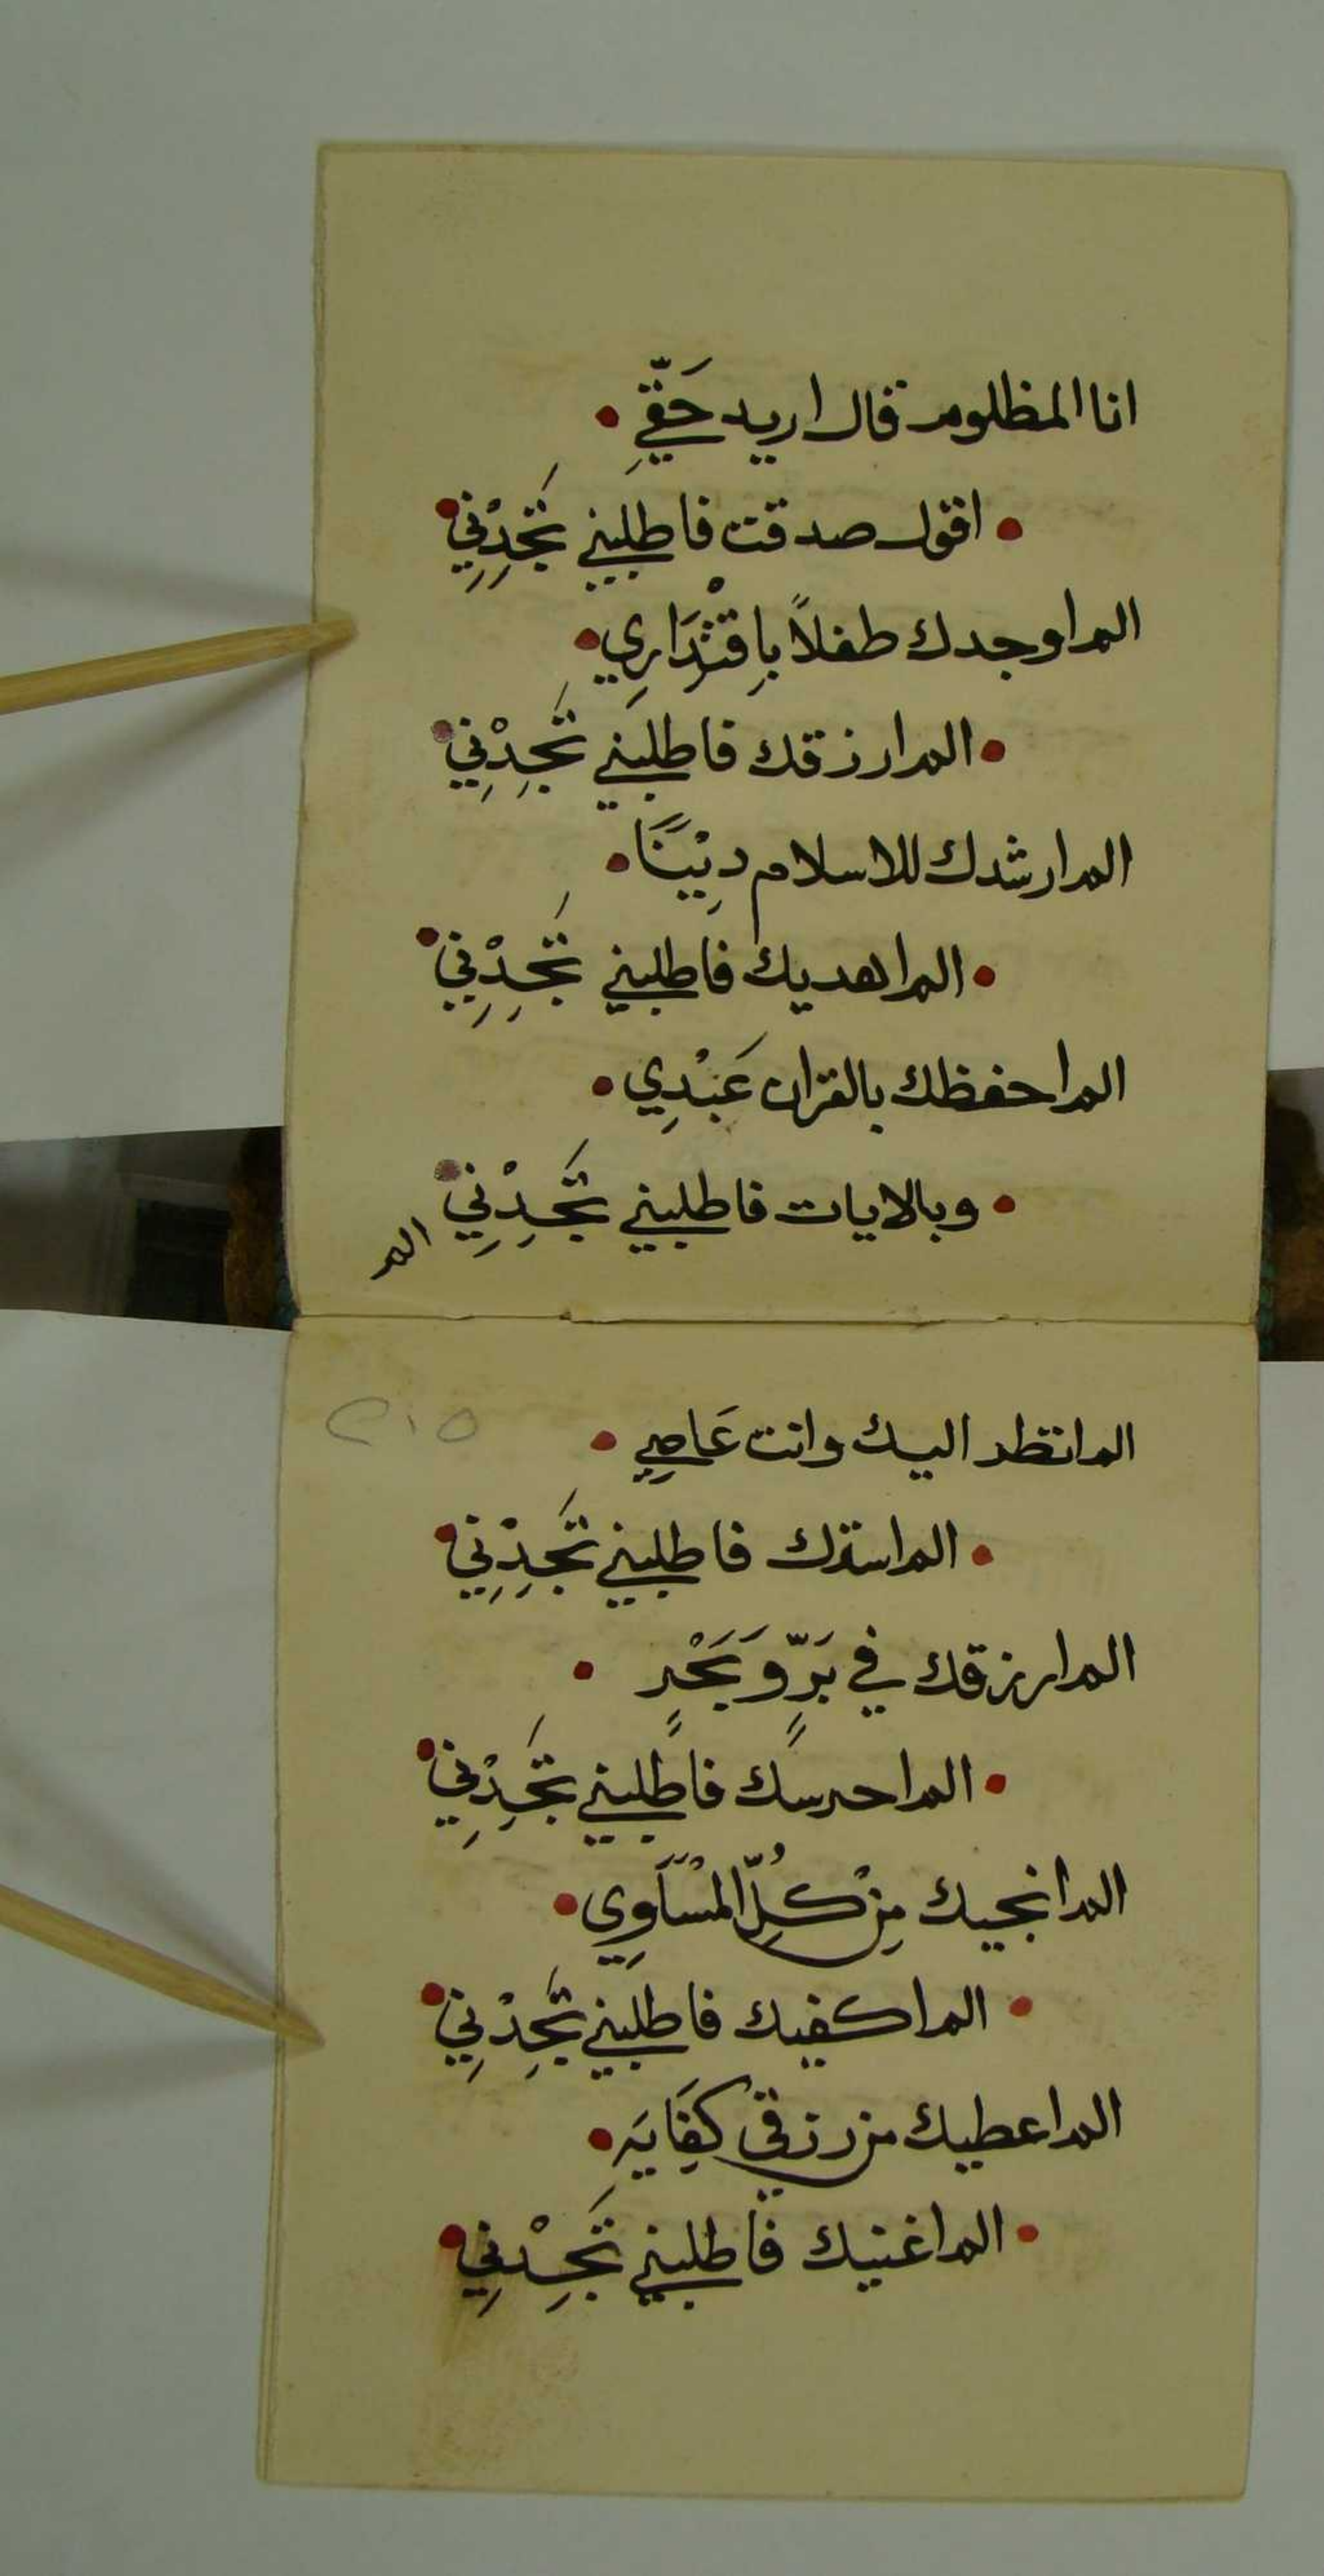 انا المظلوم قال اريد حَقّيِ •
• اقول صدقت فاطلبني تَجِدْنِي •
الم اوجدك طفلاً بِاقْتِدَارِي •
• الم ارزقك فاطلبني تَجِدْنِي •
الم ارشدك للاسلام دِيْنَاً •
• الم اهديك فاطلبني تَجِدْنِي •
الم احفظك بالقران عَبْدِي •
• وبالايات فاطلبني تَجِدْنِي •
الم
٢١٥
الم انظر اليك وانت عَاصِي •
• الم استرك فاطلبني تَجِدْنِي •
الم ارزقك في بَرٍّ وَبَحْرٍ •
• الم احرسك فاطلبني تَجِدْنِي •
الم انجيك مِنْ كُلِّ المْسَاوِي •
• الم اكفيك فاطلبني تَجِدْنِي •
الم اعطيك من رزقي كِفَايَه •
• الم اغنيك فاطلبني تَجِدْنِي •